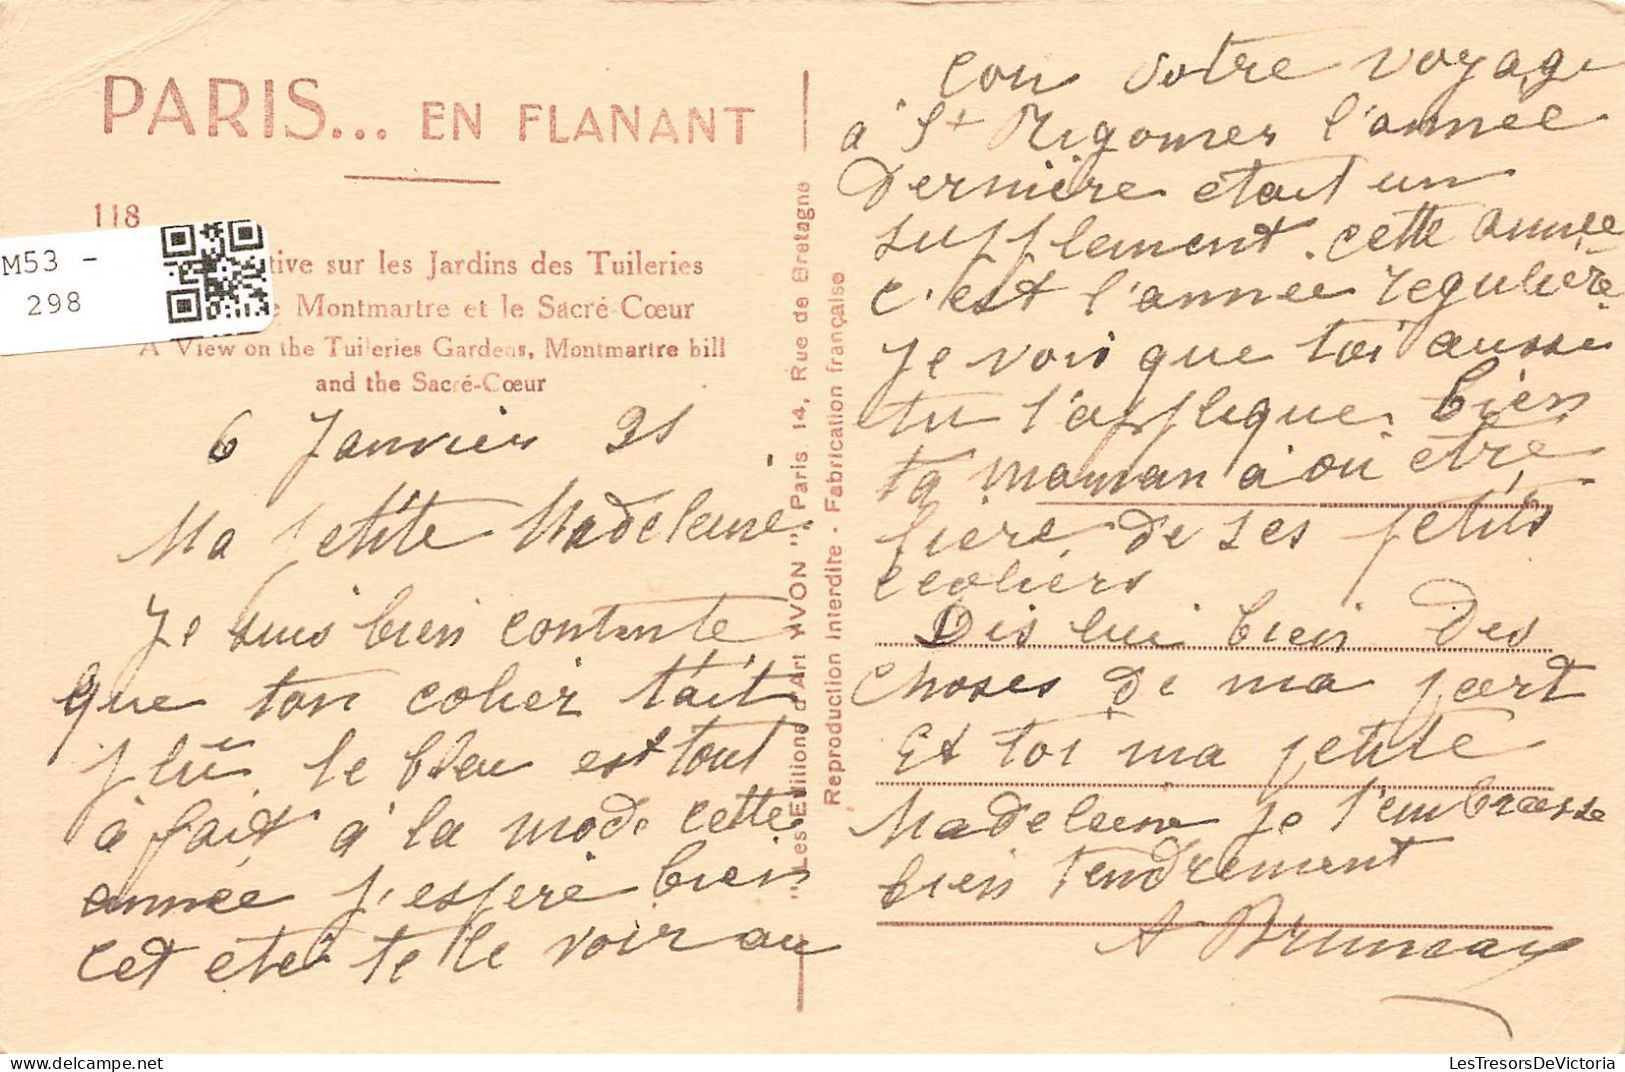 PARIS... EN FLANANT
118
M53 -
298
tive sur les Jardins des Tuileries
e Montmartre et le Sacré-Cœur
A View on the Tuileries Gardens, Montmartre hill
and the Sacré-Cœur
6 Janvier
Ma petite Madeleine
Je suis bien contente
que ton colier t'ait
plu le bleu est tout
à fait à la mode cette
année j'espère bien
cet été te le voir au
"Les Editions d'Art YVON", Paris. 14, Rue de Bretagne
Reproduction Interdite - Fabrication française
cou Votre voyage
à St Rigomer l'année
Dernière était un
supplement. cette année
c'est l'année régulière
Je vois que toi aussi
tu t'applique bien
ta maman à ou être
fiere de ses petits
ecoliers
Dis lui bien des
choses de ma part
Et toi ma petite
Madeleine je t'embrasse
bien tendrement
A
LesTresorsDeVictoria